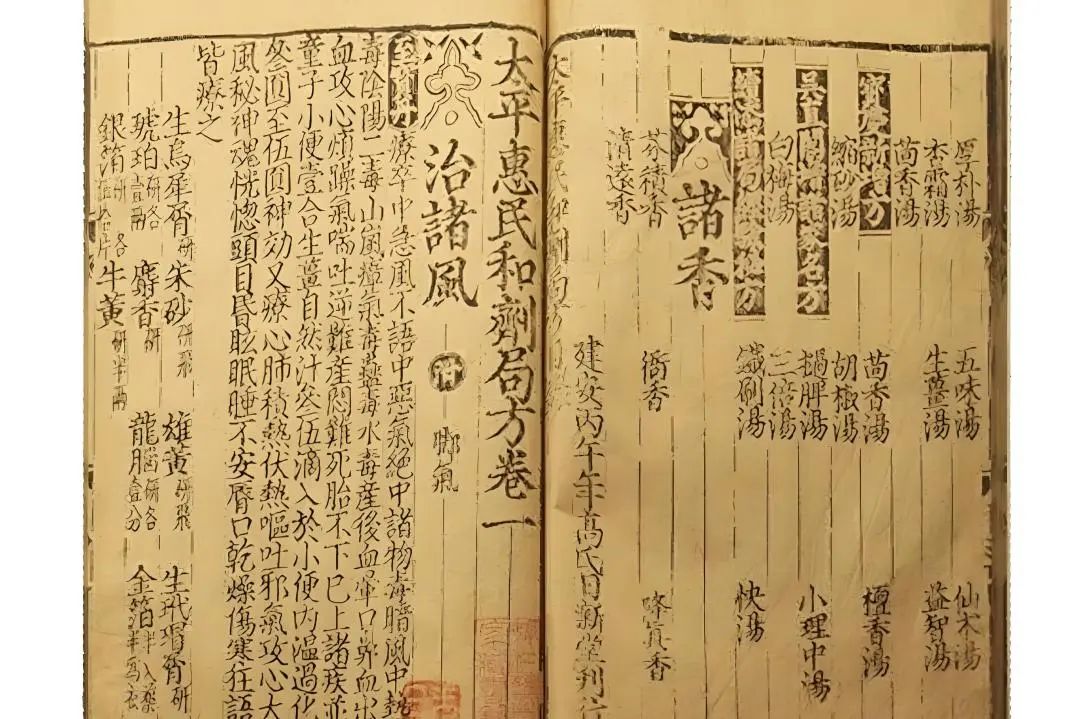 厚朴湯 五味湯 仙朮湯
杏霜湯 生薑湯 益智湯
茴香湯
新增方 茴香湯 檀香湯
縮砂湯 胡椒湯
吳直閣增諸家名方 撾脾湯 小理中湯
白梅湯 三倍湯
續添諸局經驗秘方 鐵刷湯 快湯
諸香
芬積香 衙香 降真香
清遠香
太平惠民和劑局方
建安丙午年高氏日新堂刊行
太平惠民和劑局方卷一
治諸風 附 脚氣
療卒中急風不語中惡氣絕中諸物毒暗風中熱
毒陰陽二毒山嵐瘴氣毒蠱毒水毒產後血暈口鼻血出
血攻心煩躁氣喘吐逆難產悶亂死胎不下巳上諸疾並
童子小便壹合生薑自然汁叄伍滴入於小便內溫過化
叄圓至伍圓神効又療心肺積熱伏熱嘔吐邪氣攻心大
風秘神魂恍惚頭目昏眩眠睡不安唇口乾燥傷寒狂語
皆療之
生烏犀屑研 朱砂研飛 雄黃研飛 生玳瑁屑研
琥珀研各壹兩 麝香研 龍腦研各壹分 金箔半入藥
銀箔研 牛黃研半兩